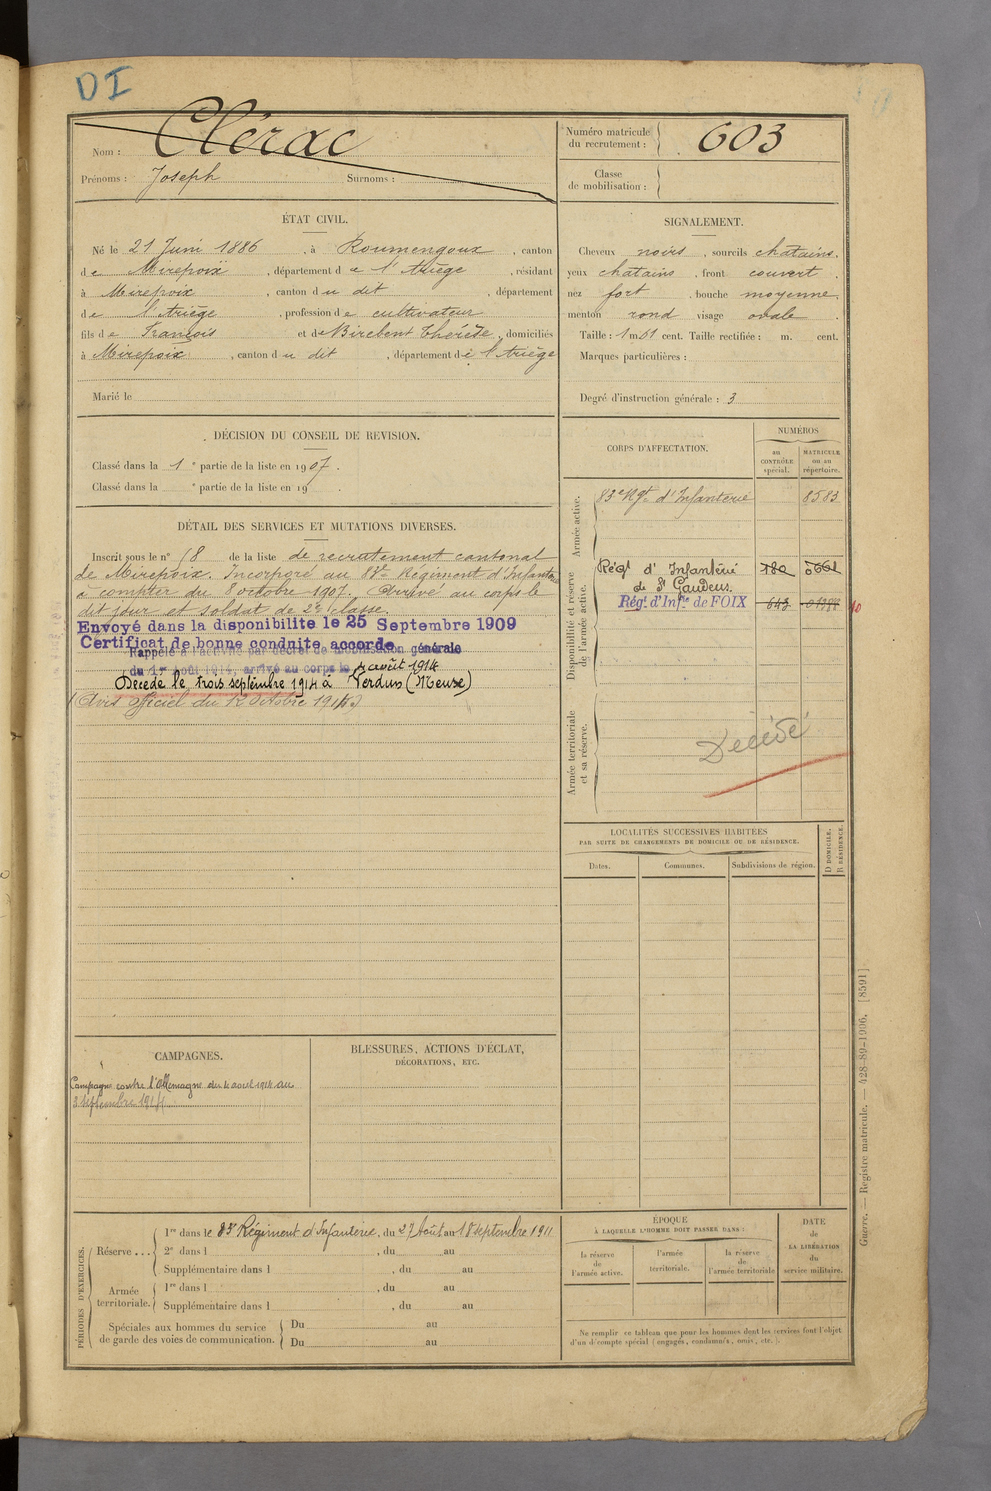 DI
Nom : Clérac
Prénoms : Joseph Surnoms :
Numéro matricule du recrutement : 603
Classe de mobilisation :
ÉTAT CIVIL.
Né le 21 Juin 1886, à Roumengoux, canton
de Mirepoix, département de l'Ariège, résidant
à Mirepoix, canton du dit, département
de l'Ariège, profession de cultivateur
fils de François et de Birebent Thérèse, domiciliés
à Mirepoix, canton du dit, département de l'Ariège
Marié le
SIGNALEMENT.
Cheveux noirs, sourcils chatains.
yeux chatains, front couvert
nez fort, bouche moyenne,
menton rond visage ovale.
Taille : 1 m 61 cent. Taille rectifiée : m. cent.
Marques particulières :
Degré d'instruction générale : 3
DÉCISION DU CONSEIL DE REVISION.
Classé dans la 1e partie de la liste en 1907.
Classé dans la e partie de la liste en 19 .
DÉTAIL DES SERVICES ET MUTATIONS DIVERSES.
Inscrit sous le n° 18 de la liste de recrutement cantonal
de Mirepoix. Incorporé au 83e Régiment d'Infanterie
à compter du 8 octobre 1907. Arrivé au corps le
dit jour et soldat de 2e classe.
Envoyé dans la disponibilite le 25 Septembre 1909
Certificat de bonne conduite accorde
Rappelé à l'activité par décret de mobilisation générale
du 1er Août 1914, arrivé au corps le 4 août 1914
Décédé le trois septembre 1914 à Verdun (Meuse)
(Avis officiel du 12 Octobre 1914)
CORPS D'AFFECTATION.
NUMÉROS
au CONTRÔLE spécial.
MATRICULE ou au répertoire.
Armée active.
83e Rgt d'Infanterie 8583
Disponibilité et réserve de l'armée active.
Régt d'Infanterie 180
de St Gaudens.
Régt d'Infie de FOIX 643
10
Armée territoriale et sa réserve.
Décédé
LOCALITÉS SUCCESSIVES HABITÉES
PAR SUITE DE CHANGEMENTS DE DOMICILE OU DE RÉSIDENCE.
Dates. Communes. Subdivisions de région.
D DOMICILE.
R RÉSIDENCE.
CAMPAGNES.
Campagne contre l'Allemagne du 4 aout 1914 au
3 septembre 1914
BLESSURES, ACTIONS D'ÉCLAT,
DÉCORATIONS, ETC.
PÉRIODES D'EXERCICES.
Réserve . . .
1re dans le 83e Régiment d'Infanterie, du 27 Août au 18 septembre 1911
2e dans l , du au
Supplémentaire dans l , du au
Armée territoriale.
1re dans l , du au
Supplémentaire dans l , du au
Spéciales aux hommes du service de garde des voies de communication.
Du au
Du au
ÉPOQUE
À LAQUELLE L'HOMME DOIT PASSER DANS :
la réserve de l'armée active.
l'armée territoriale.
la réserve de l'armée territoriale
DATE de LA LIBÉRATION du service militaire.
Ne remplir ce tableau que pour les hommes dont les services font l'objet
d'un décompte spécial (engagés, condamnés, omis, etc.).
Guerre. — Registre matricule. — 428-89-1906. [8591]